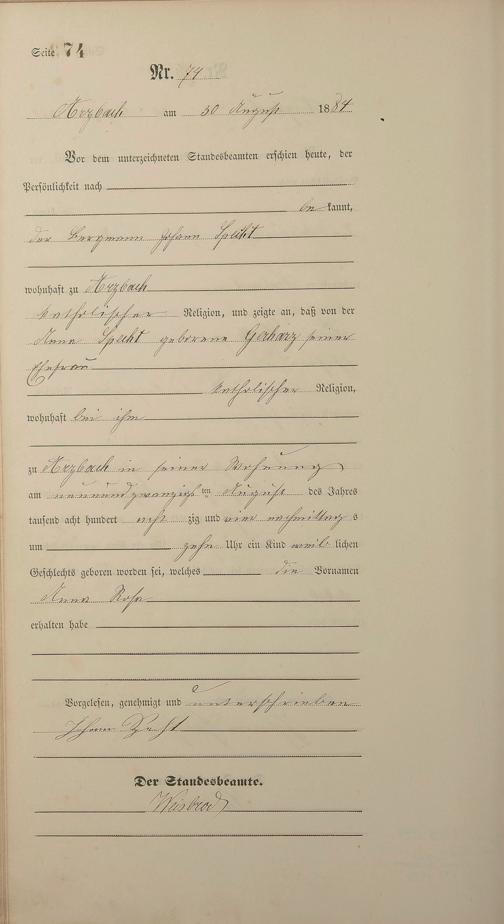 Seite 74
Nr. 74
Arzbach am 30 August 1884
Vor dem unterzeichneten Standesbeamten erschien heute, der
Persönlichkeit nach
be kannt,
der Bergmann Johann Specht
wohnhaft zu Arzbach
katholischer Religion, und zeigte an, daß von der
Anna Specht geborene Gerharz seiner
Ehefrau
katholischer Religion,
wohnhaft bei ihm
zu Arzbach in seiner Wohnung
am neunundzwanzigsten August des Jahres
tausend acht hundert acht zig und vier nachmittag s
um zehn Uhr ein Kind weib lichen
Geschlechts geboren worden sei, welches die Vornamen
Anna Rosa
erhalten habe
Vorgelesen, genehmigt und unterschrieben
Johann
Der Standesbeamte.
Weisbrod